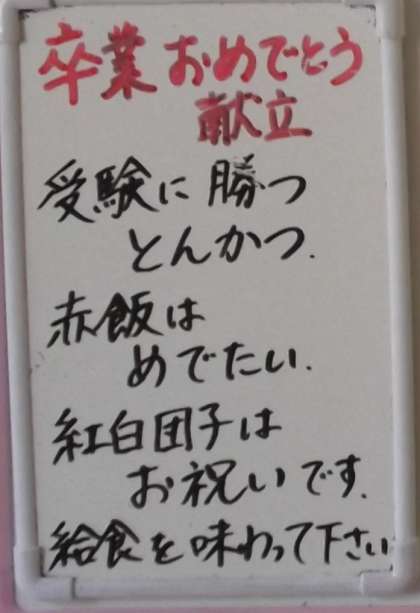 卒業おめでとう
献立
受験に勝つ
とんかつ.
赤飯は
めでたい.
紅白団子は
お祝いです.
給食を味わって下さい